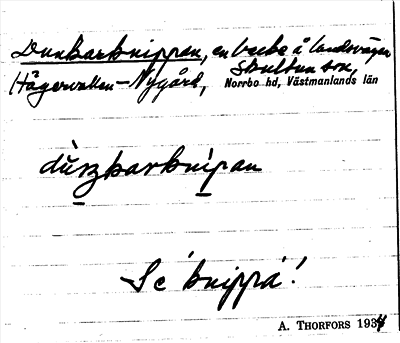 Dunkarknippan, en backe å landsvägen
Hågervallen–Nygård, Skultuna sn,
Norrbo hd, Västmanlands län
Se knippa!
A. THORFORS 1934